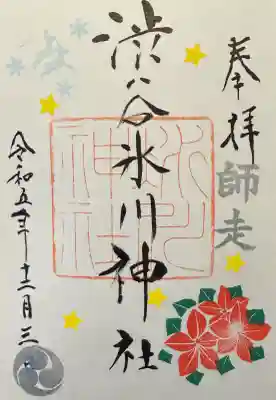 奉拝
師走
渋谷氷川神社
氷川
神社
令和五年十二月三